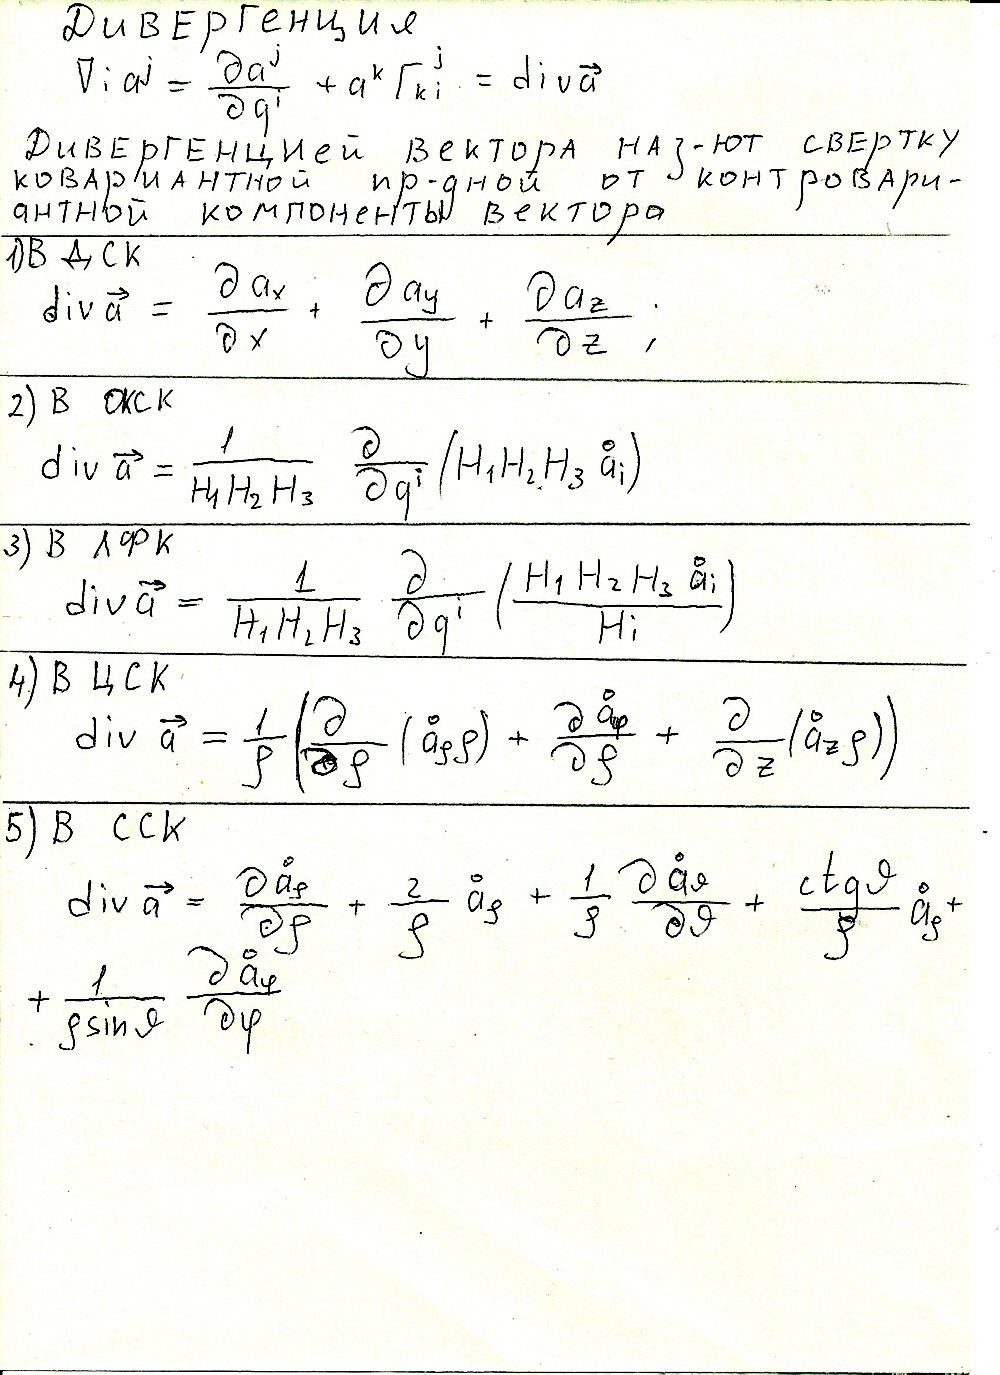 Дивергенция
∇i a^j = ∂a^j/∂q^i + a^k Γ_ki^j = div a⃗
Дивергенцией вектора наз-ют свертку
ковариантной пр-дной от контровари-
антной компоненты вектора
1) В ДСК
div a⃗ = ∂a_x/∂x + ∂a_y/∂y + ∂a_z/∂z ;
2) В ОКСК
div a⃗ = 1/(H₁H₂H₃) ∂/∂q^i (H₁H₂H₃ å_i)
3) В ЛФК
div a⃗ = 1/(H₁H₂H₃) ∂/∂q^i (H₁H₂H₃ å_i / H_i)
4) В ЦСК
div a⃗ = 1/ρ (∂/∂ρ (å_ρ ρ) + ∂å_φ/∂ρ + ∂/∂z (å_z ρ))
5) В ССК
div a⃗ = ∂å_ρ/∂ρ + 2/ρ å_ρ + 1/ρ ∂å_ϑ/∂ϑ + ctgϑ/ρ å_ρ +
+ 1/(ρ sinϑ) ∂å_φ/∂φ